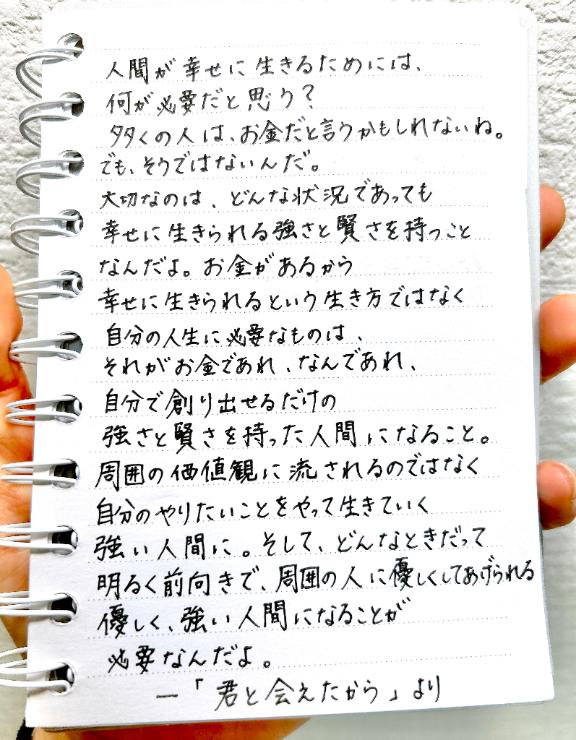 人間が幸せに生きるためには、
何が必要だと思う？
多くの人は、お金だと言うかもしれないね。
でも、そうではないんだ。
大切なのは、どんな状況であっても
幸せに生きられる強さと賢さを持つこと
なんだよ。お金があるから
幸せに生きられるという生き方ではなく
自分の人生に必要なものは、
それがお金であれ、なんであれ、
自分で創り出せるだけの
強さと賢さを持った人間になること。
周囲の価値観に流されるのではなく
自分のやりたいことをやって生きていく
強い人間に。そして、どんなときだって
明るく前向きで、周囲の人に優しくしてあげられる
優しく、強い人間になることが
必要なんだよ。
―「君と会えたから」より